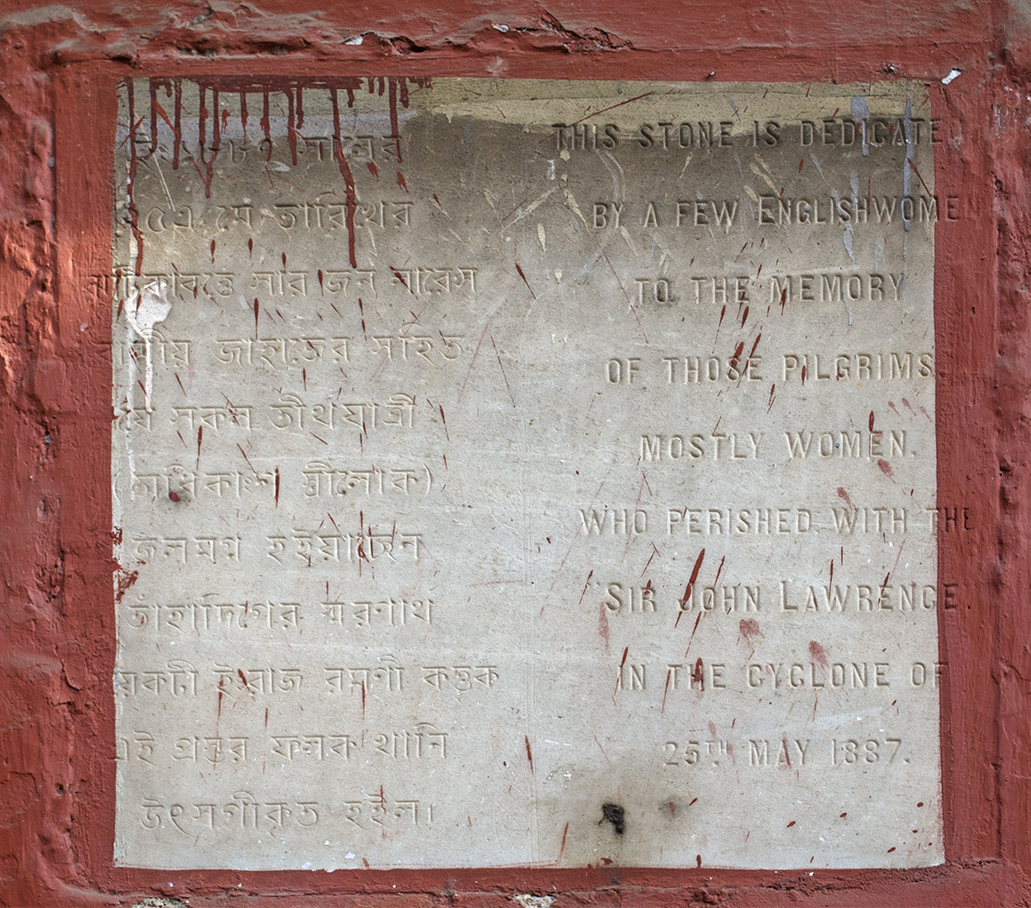 ইং ১৮৮৭ সালের
২৫এ মে তারিখের
ঝটিকাবর্ত্তে সার জন লারেন্স
বাষ্পীয় জাহাজের সহিত
যে সকল তীর্থযাত্রী
(অধিকাংশ স্ত্রীলোক)
জলমগ্ন হইয়াছেন
তাঁহাদিগের স্মরণার্থ
কয়েকটী ইংরাজ রমণী কর্ত্তৃক
এই প্রস্তর ফলক খানি
উৎসর্গীকৃত হইল।
THIS STONE IS DEDICATED
BY A FEW ENGLISHWOMEN
TO THE MEMORY
OF THOSE PILGRIMS,
MOSTLY WOMEN,
WHO PERISHED WITH THE
"SIR JOHN LAWRENCE"
IN THE CYCLONE OF
25TH MAY 1887.